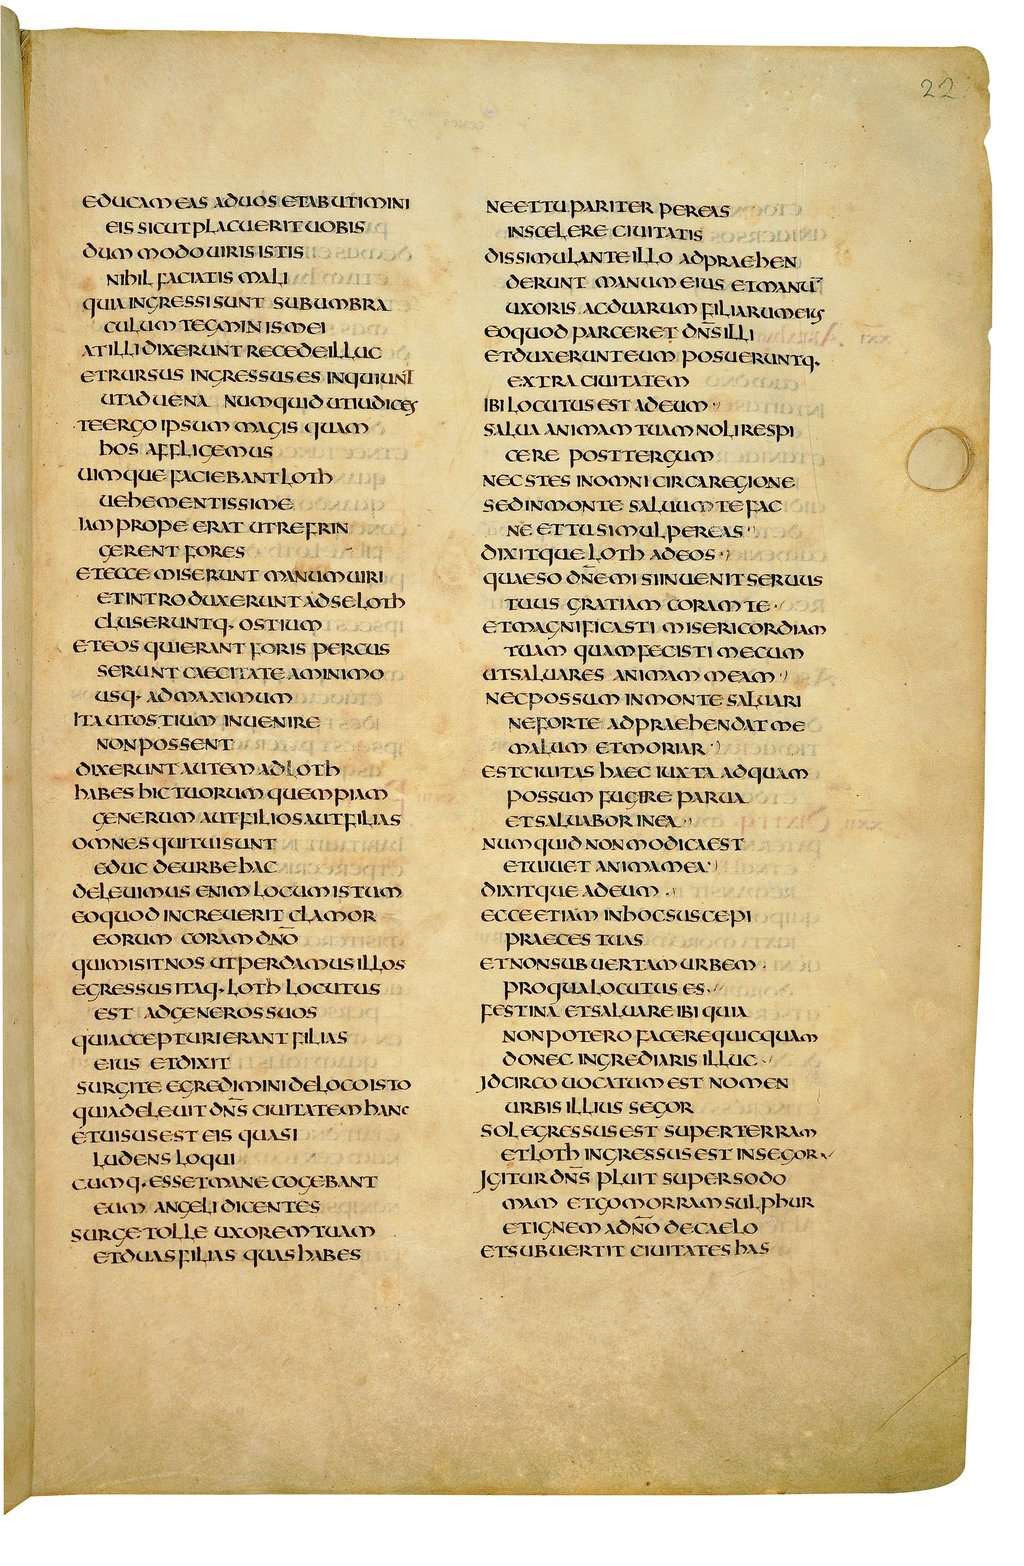 22
EDUCAM EAS AD UOS ET ABUTIMINI
EIS SICUT PLACUERIT UOBIS
DUM MODO UIRIS ISTIS
NIHIL FACIATIS MALI
QUIA INGRESSI SUNT SUB UMBRA
CULUM TEGMINIS MEI
AT ILLI DIXERUNT RECEDE ILLUC
ET RURSUS INGRESSUS ES INQUIUNT
UT ADUENA NUMQUID UT IUDICES
TE ERGO IPSUM MAGIS QUAM
HOS AFFLIGEMUS
UIMQUE FACIEBANT LOTH
UEHEMENTISSIME
IAM PROPE ERAT UT REFRIN
GERENT FORES
ET ECCE MISERUNT MANUM UIRI
ET INTRODUXERUNT AD SE LOTH
CLUSERUNTQ· OSTIUM
ET EOS QUI ERANT FORIS PERCUS
SERUNT CAECITATE A MINIMO
USQ· AD MAXIMUM
ITA UT OSTIUM INUENIRE
NON POSSENT
DIXERUNT AUTEM AD LOTH
HABES HIC TUORUM QUEMPIAM
GENERUM AUT FILIOS AUT FILIAS
OMNES QUI TUI SUNT
EDUC DE URBE HAC
DELEUIMUS ENIM LOCUM ISTUM
EO QUOD INCREUERIT CLAMOR
EORUM CORAM DN̅O
QUI MISIT NOS UT PERDAMUS ILLOS
EGRESSUS ITAQ· LOTH LOCUTUS
EST AD GENEROS SUOS
QUI ACCEPTURI ERANT FILIAS
EIUS ET DIXIT
SURGITE EGREDIMINI DE LOCO ISTO
QUIA DELEUIT DN̅S CIUITATEM HANC
ET UISUS EST EIS QUASI
LUDENS LOQUI
CUMQ· ESSET MANE COGEBANT
EUM ANGELI DICENTES
SURGE TOLLE UXOREM TUAM
ET DUAS FILIAS QUAS HABES
NE ET TU PARITER PEREAS
IN SCELERE CIUITATIS
DISSIMULANTE ILLO ADPRAEHEN
DERUNT MANUM EIUS ET MANU̅
UXORIS AC DUARUM FILIARUM EIUS
EO QUOD PARCERET DN̅S ILLI
ET DUXERUNT EUM POSUERUNTQ·
EXTRA CIUITATEM
IBI LOCUTUS EST AD EUM
SALUA ANIMAM TUAM NOLI RESPI
CERE POST TERGUM
NEC STES IN OMNI CIRCA REGIONE
SED IN MONTE SALUUM TE FAC
NE ET TU SIMUL PEREAS
DIXITQUE LOTH AD EOS
QUAESO DN̅E MI SI INUENIT SERUUS
TUUS GRATIAM CORAM TE
ET MAGNIFICASTI MISERICORDIAM
TUAM QUAM FECISTI MECUM
UT SALUARES ANIMAM MEAM
NEC POSSUM IN MONTE SALUARI
NE FORTE ADPRAEHENDAT ME
MALUM ET MORIAR
EST CIUITAS HAEC IUXTA AD QUAM
POSSUM FUGIRE PARUA
ET SALUABOR IN EA
NUMQUID NON MODICA EST
ET UIUET ANIMA MEA
DIXITQUE AD EUM
ECCE ETIAM IN HOC SUSCEPI
PRAECES TUAS
ET NON SUBUERTAM URBEM
PRO QUA LOCUTUS ES
FESTINA ET SALUARE IBI QUIA
NON POTERO FACERE QUICQUAM
DONEC INGREDIARIS ILLUC
IDCIRCO UOCATUM EST NOMEN
URBIS ILLIUS SEGOR
SOL EGRESSUS EST SUPER TERRAM
ET LOTH INGRESSUS EST IN SEGOR
IGITUR DN̅S PLUIT SUPER SODO
MAM ET GOMORRAM SULPHUR
ET IGNEM A DN̅O DE CAELO
ET SUBUERTIT CIUITATES HAS